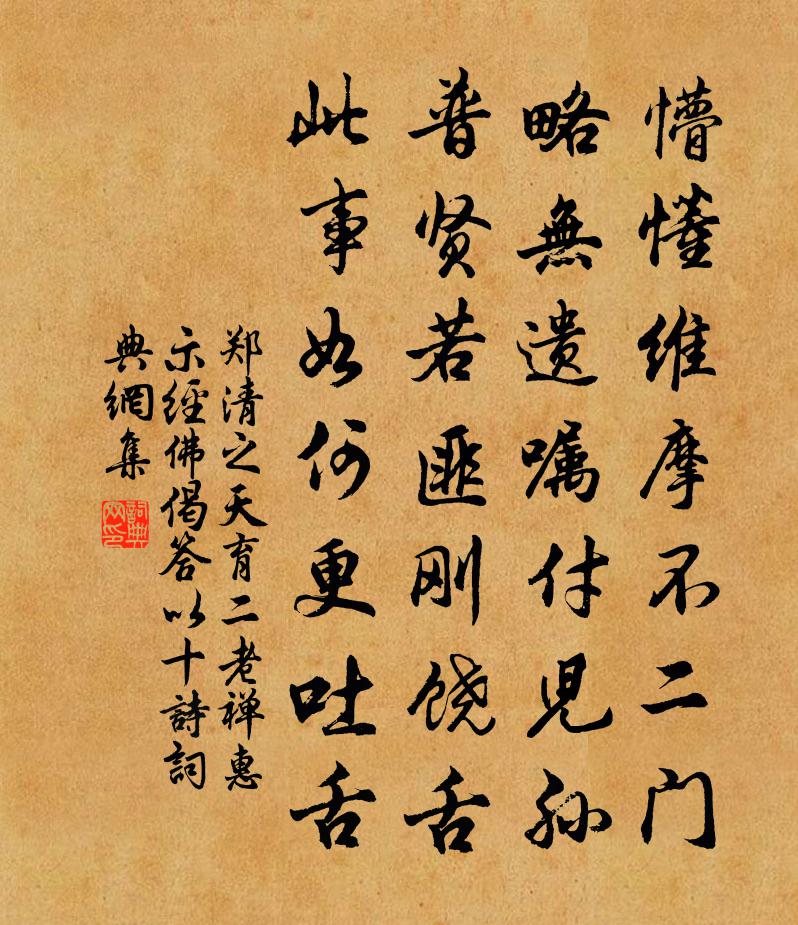 懵懂维摩不二门
略無遗嘱付児孙
普贤若匪刚饶舌
此事如何更吐舌
郑清之天育二老禅惠
示經佛偈答以十詩詞
典網集
詞典
网印